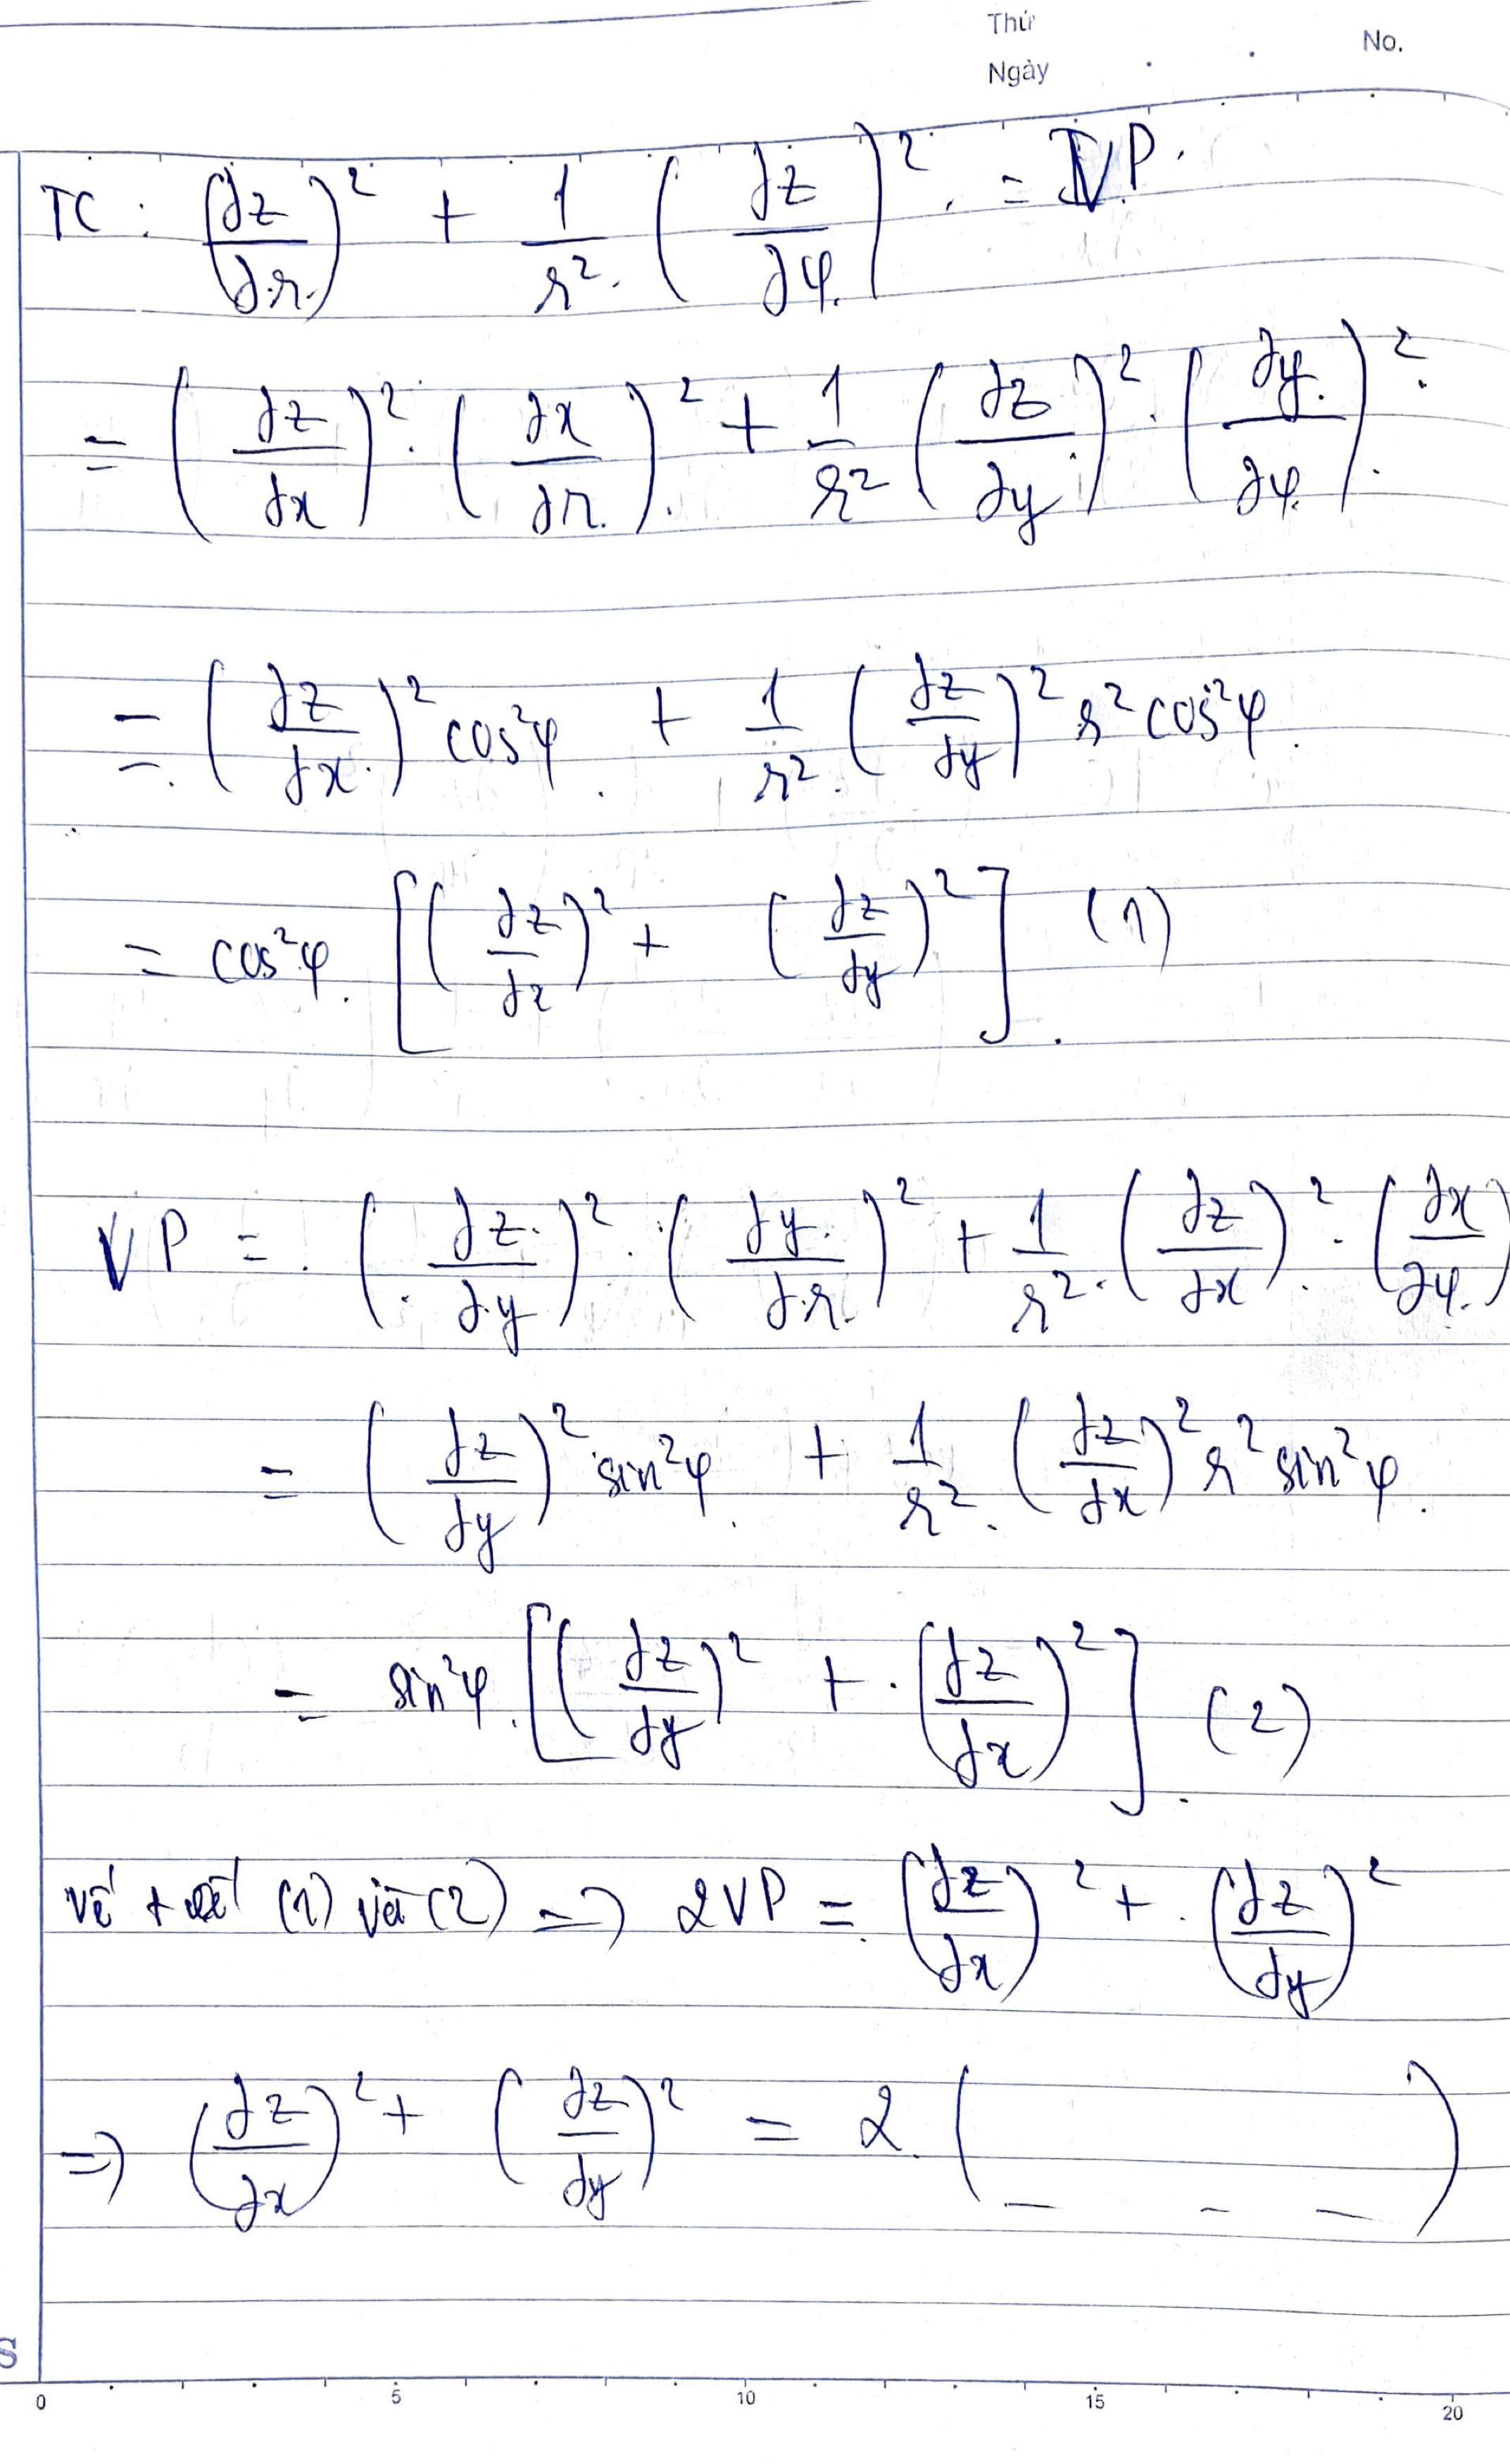 Thứ
No.
Ngày
TC : (∂z/∂r)² + 1/r² (∂z/∂φ)² = VP.
= (∂z/∂x)² . (∂x/∂r)² + 1/r² (∂z/∂y)² . (∂y/∂φ)²
= (∂z/∂x)² cos²φ + 1/r² (∂z/∂y)² r² cos²φ
= cos²φ . [(∂z/∂x)² + (∂z/∂y)²] (1)
VP = (∂z/∂y)² . (∂y/∂r)² + 1/r² . (∂z/∂x)² . (∂x/∂φ)
= (∂z/∂y)² sin²φ + 1/r² . (∂z/∂x)² r² sin²φ
= sin²φ . [(∂z/∂y)² + (∂z/∂x)²] (2)
Vế + vế (1) và (2) => 2VP = (∂z/∂x)² + (∂z/∂y)²
=> (∂z/∂x)² + (∂z/∂y)² = 2 . ( _ _ _ )
S
0 5 10 15 20